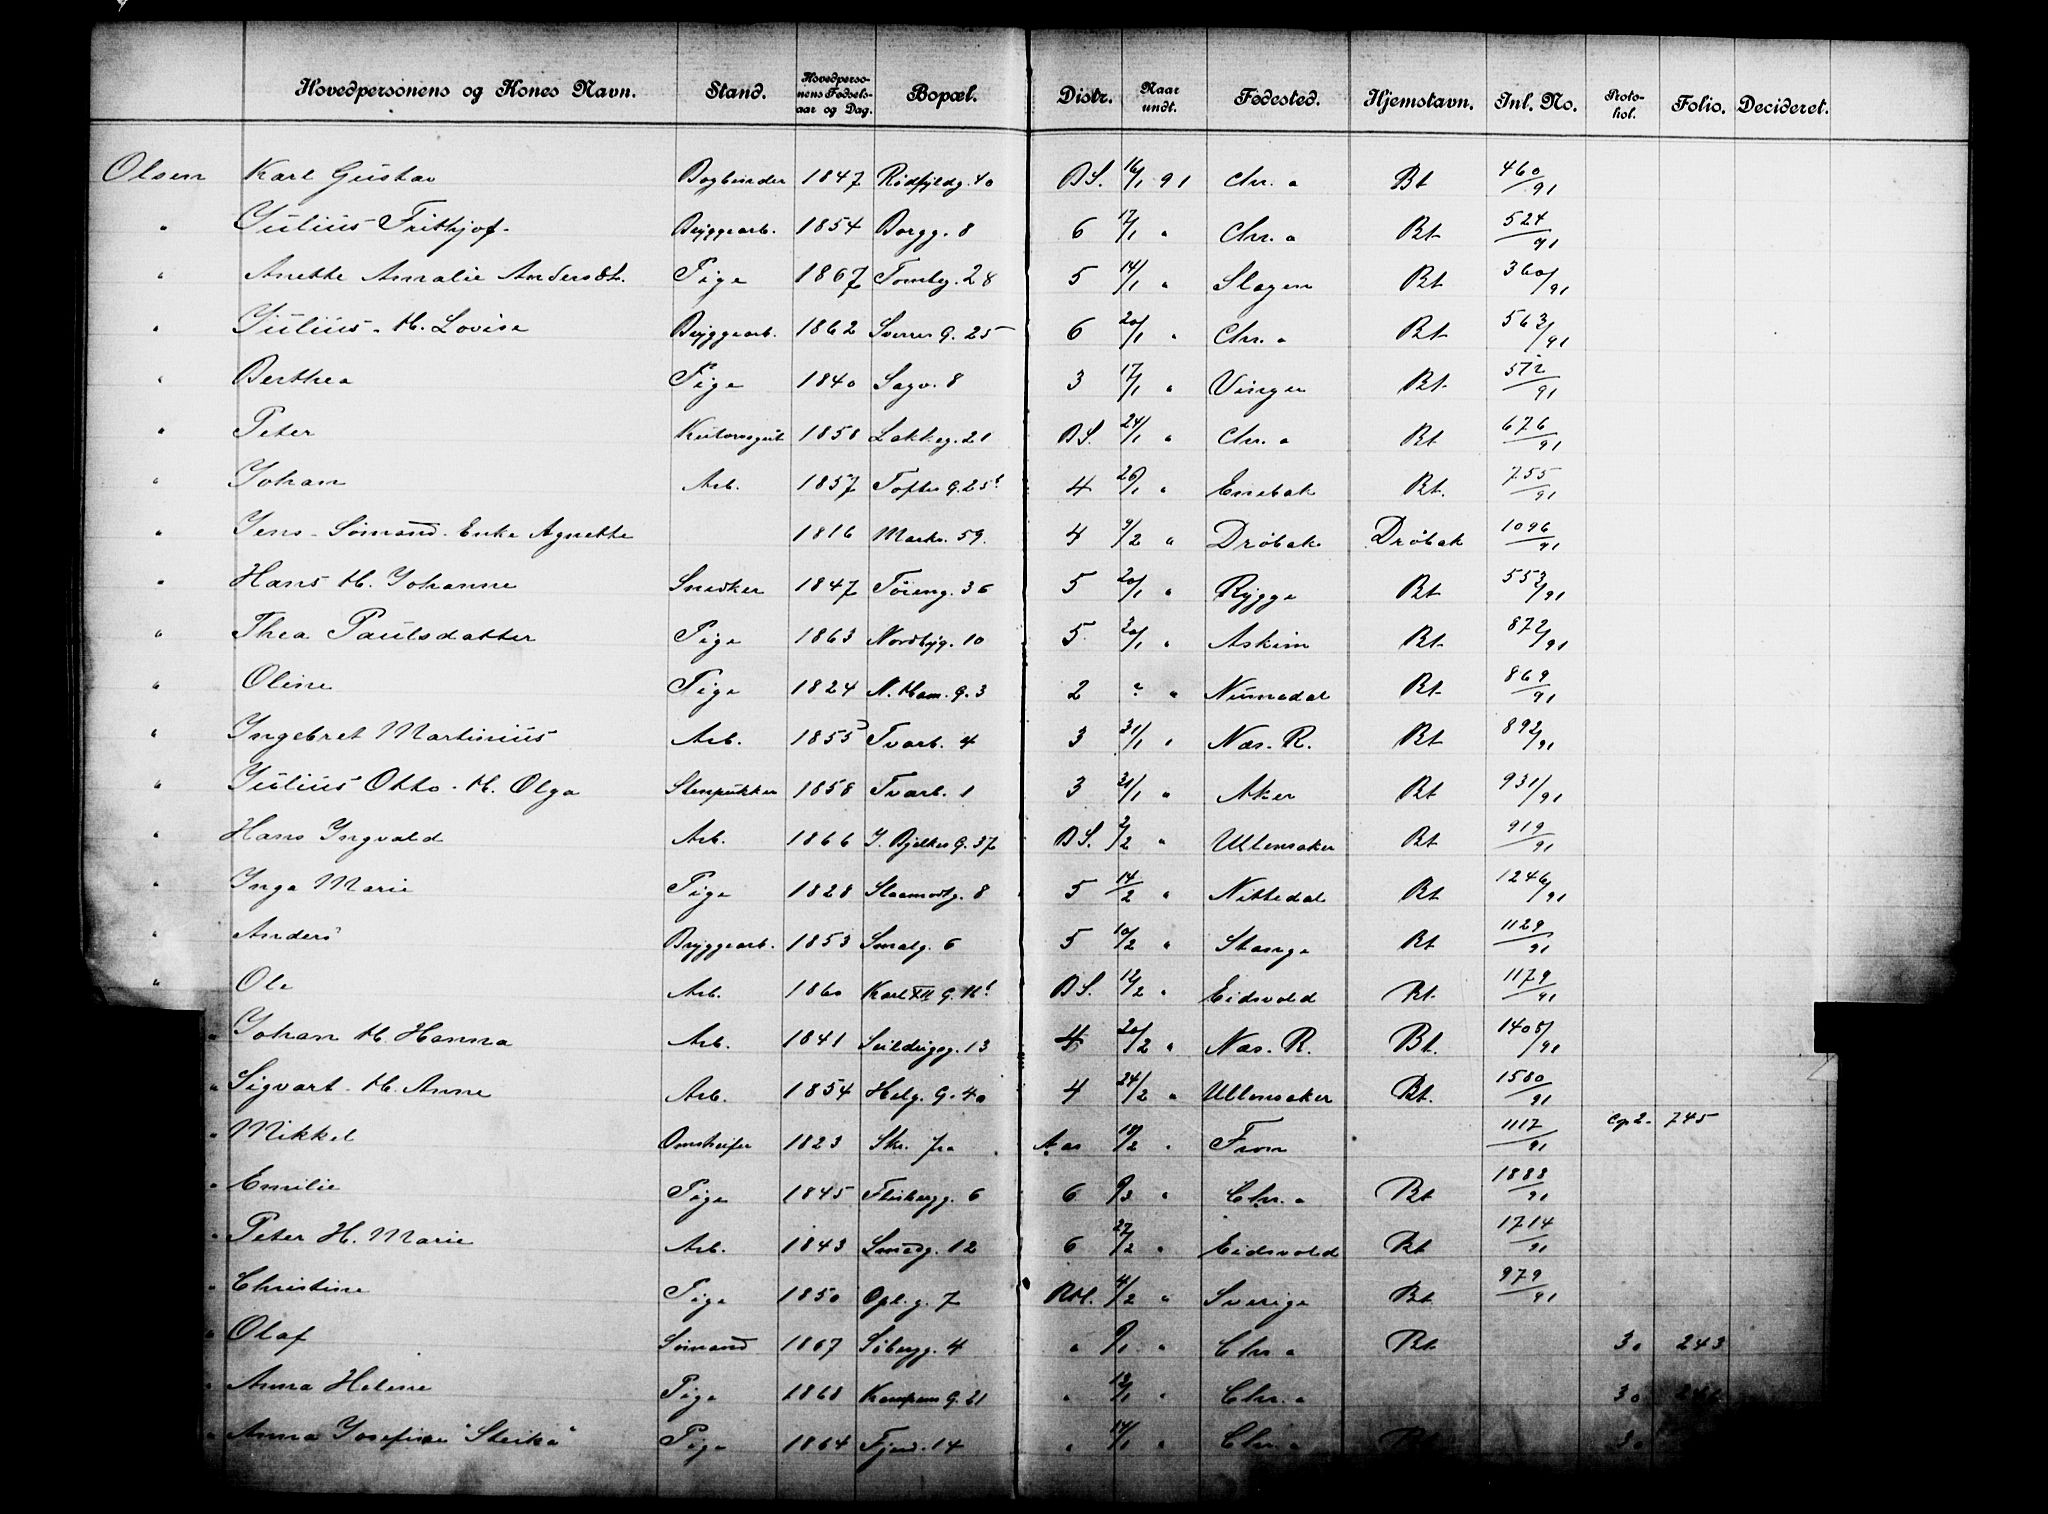 Hovedpersonens og Kones Navn. Stand. Hovedpersonens Fødselsaar og Dag. Bopæl. Distr. Naar undt. Fødested. Hjemstavn. Inl. No. Protokol. Folio. Decideret.
Olsen Karl Gustav Bogbinder 1847 Rødfyldg. 40 BS. 16/1 91 Chr. a Bt 460/91
" Julius Frithjof. Bryggearb. 1854 Borgg. 8 6 17/1 " Chr. a Bt 524/91
" Anette Amalie Andersdt. Pige 1867 Tomteg. 28 5 14/1 " Slagen Bt 360/91
" Julius - H. Lovise Bryggearb. 1862 Sverres G. 25 6 20/1 " Chr. a Bt 563/91
" Berthea Pige 1840 Sagv. 8 3 17/1 " Vinger Bt 572/91
" Peter 1858 Lakkeg. 21 BS. 24/1 " Chr. a Bt 676/91
" Johan Arb. 1857 Toftes G. 25b 4 26/1 " Enebak Bt. 755/91
" Jens - Sømand - Enke Agnethe 1816 Markv. 59. 4 9/2 " Drøbak Drøbak 1096/91
" Hans H. Johanne Snedker 1847 Tøieng. 36 5 20/1 " Rygge Bt 553/91
" Thea Paulsdatter Pige 1863 Nordbyg. 10 5 30/1 " Askim Bt 872/91
" Oline Pige 1824 N. Ham. G. 3 2 ? " Numedal Bt 869/91
" Ingebret Martinius Arb. 1855 Tvarb. 4 3 31/1 " Næs. R. Bt 892/91
" Julius Otto - H. Olga Stenpukker 1858 Tvarb. 1 3 31/1 " Aker Bt 931/91
" Hans Ingvald Arb. 1866 J. Bjelkes G. 37 BS. 2/2 " Ullensaker Bt 919/91
" Inga Marie Pige 1828 Slaamotg. 8 5 14/2 " Nittedal Bt 1246/91
" Anders Bryggearb. 1853 Smalg. 6 5 10/2 " Stange Bt 1129/91
" Ole Arb. 1860 Karl XII G. 16b BS. 12/2 " Eidsvold Bt. 1179/91
" Johan H. Hanna Arb. 1841 Seildugsg. 13 4 20/2 " Næs. R. Bt. 1405/91
" Sigvart - H. Anne Arb. 1854 Helg. G. 40 4 24/2 " Ullensaker Bt. 1580/91
" Mikkel Omstreifer 1823 Skr. fra Aas 10/2 " From 1117/91 Cp 2. 745
" Emilie Pige 1845 Flisbergg. 6 6 9/3 " Chr. a Bt 1888/91
" Peter H. Marie Arb. 1843 Smedg. 12 6 27/2 " Eidsvold Bt 1714/91
" Christine Pige 1850 Opl. g. 7 4/2 " Sverige Bt 979/91
" Olaf Sømand 1867 Søbergg. 4 " 9/1 " Chr. a Bt 30 243
" Anna Helene Pige 1868 Kampens G. 21 " 13/1 " Chr. a 30
" Anna Josefine "Steika" Pige 1864 Fjerd. 14 " 14/1 " Chr. a Bt 30